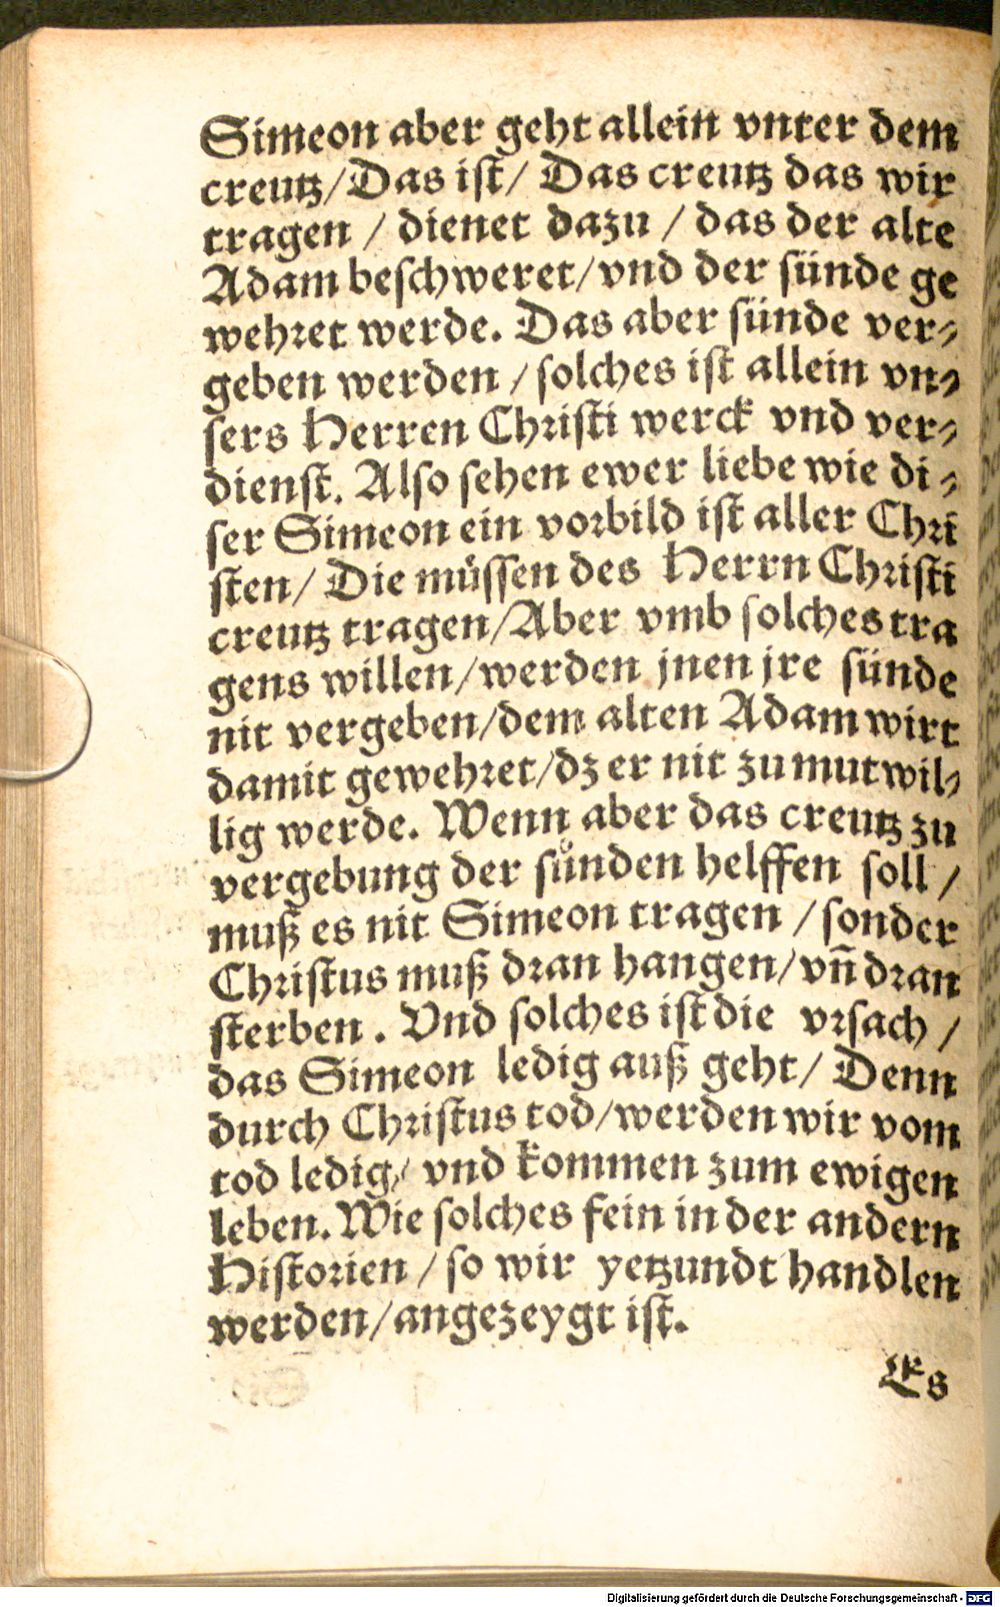 Simeon aber geht allein vnter dem
creutz/Das ist/ Das creutz das wir
tragen / dienet dazu / das der alte
Adam beschweret/vnd der sünde ge
wehret werde. Das aber sünde ver-
geben werden / solches ist allein vn-
sers Herren Christi werck vnd ver-
dienst. Also sehen ewer liebe wie di-
ser Simeon ein vorbild ist aller Chri
sten/ Die müssen des Herrn Christi
creutz tragen/Aber vmb solches tra
gens willen/werden jnen jre sünde
nit vergeben/dem alten Adam wirt
damit gewehret/dz er nit zu mutwil-
lig werde. Wenn aber das creutz zu
vergebung der sůnden helffen soll /
muß es nit Simeon tragen / sonder
Christus muß dran hangen/vñ dran
sterben. Vnd solches ist die vrsach /
das Simeon ledig auß geht/ Denn
durch Christus tod/werden wir vom
tod ledig/ vnd kommen zum ewigen
leben. Wie solches fein in der andern
Historien / so wir yetzundt handlen
werden/angezeygt ist.
Es
Digitalisierung gefördert durch die Deutsche Forschungsgemeinschaft - DFG